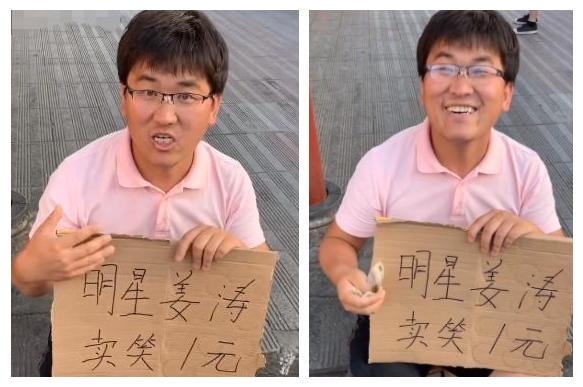 明星姜涛
卖笑1元
明星姜涛
卖笑1元